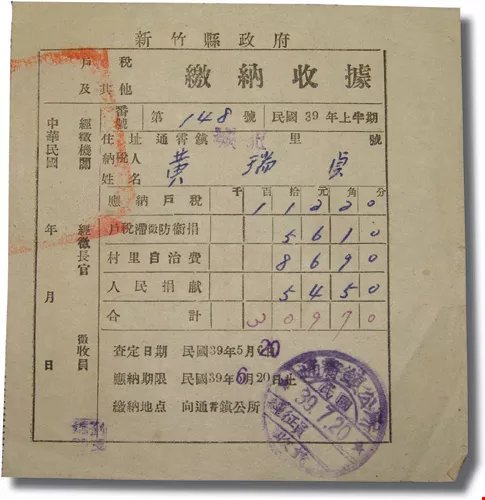 新竹縣政府
戶稅及其他 繳納收據
番號 第148號 民國39年上半期
住址 通霄鎮 里 號
納稅人姓名 黃瑞貞
千百拾元角分
應納戶稅 11220
戶稅帶徵防衛捐 5610
村里自治費 8690
人民捐獻 5450
合計 30970
查定日期 民國39年5月20日
應納期限 民國39年6月20日止
繳納地点 向通霄鎮公所
經徵機關 經徵長官 徵收員
中華民國 年 月 日
通霄鎮公所
民國
39.7.20
經征員
收訖